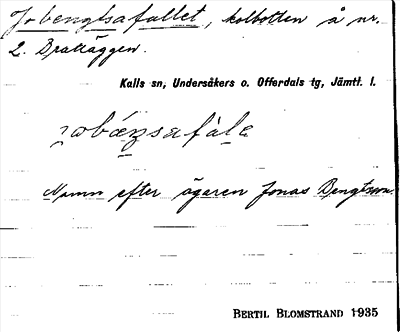 Jobengtsafallet, kolbotten å nr.
2. Brattäggen.
Kalls sn, Undersåkers o. Offerdals tg, Jämtl. l.
Namn efter ägaren Jonas Bengtsson.
BERTIL BLOMSTRAND 1935